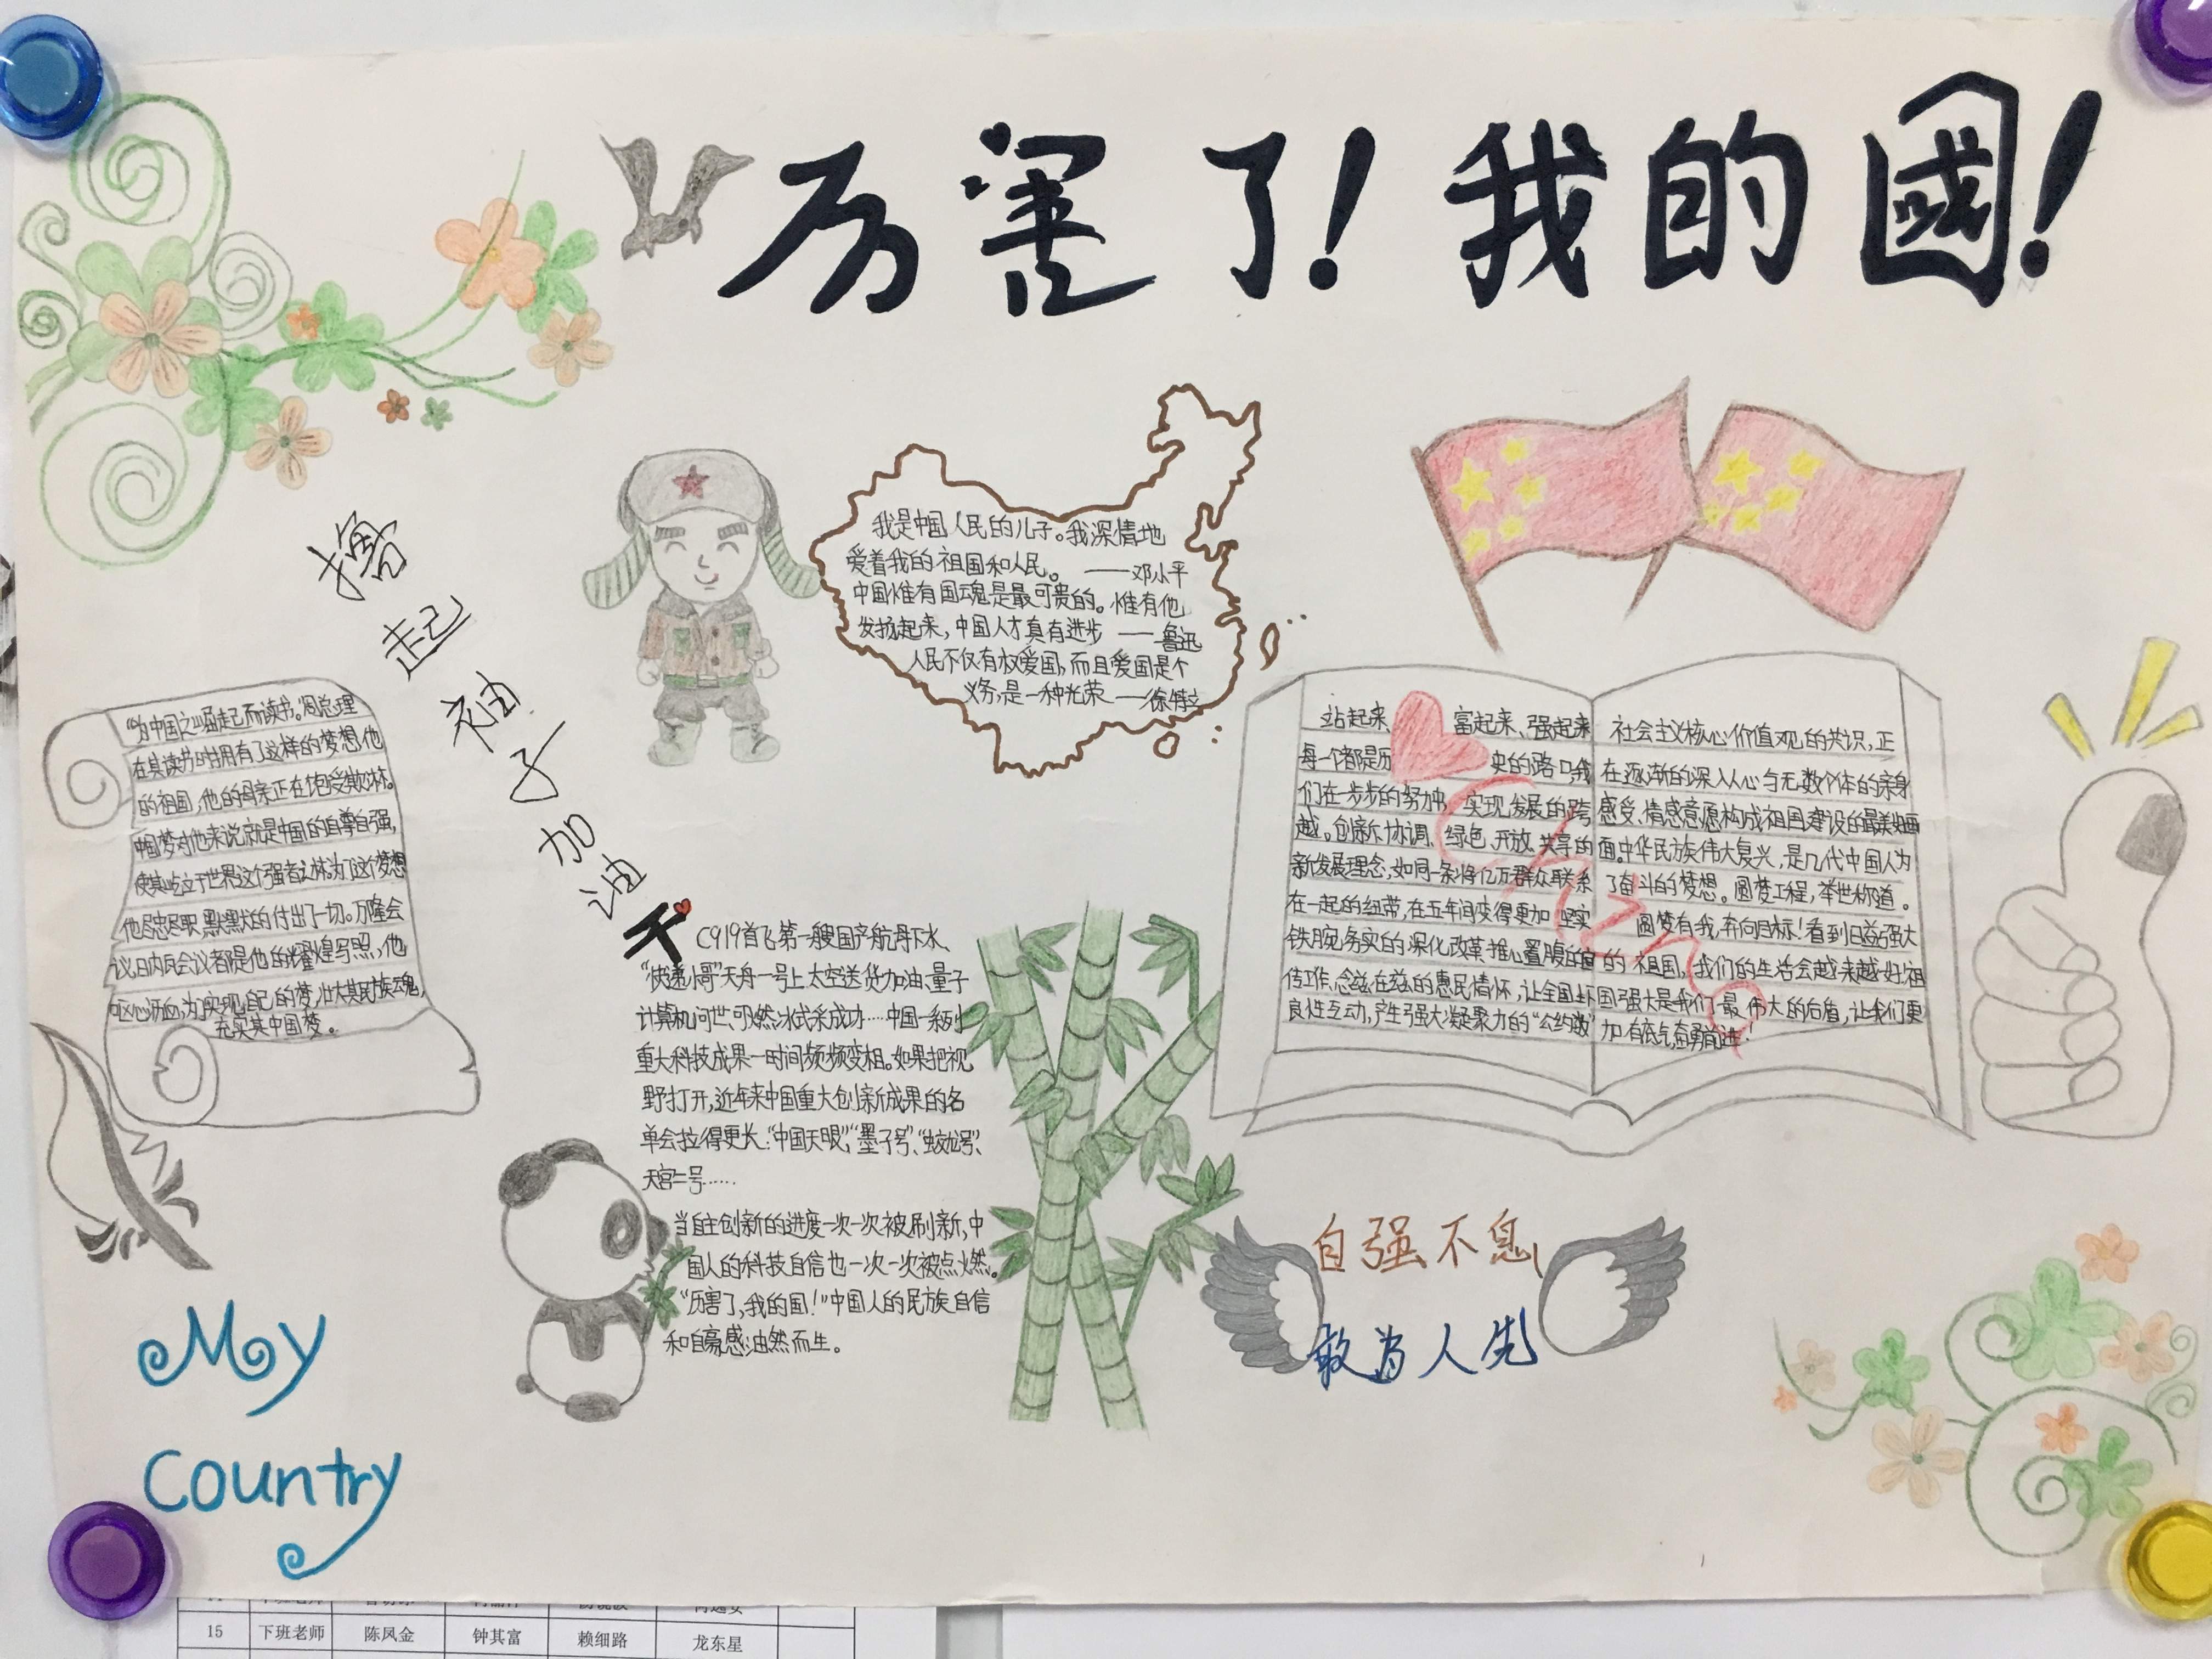 厉害了！我的國！
撸起袖子加油干
我是中国人民的儿子。我深情地
爱着我的祖国和人民。 ——邓小平
中国惟有国魂是最可贵的。惟有他
发扬起来，中国人才真有进步 ——鲁迅
人民不仅有权爱国，而且爱国是个
义务，是一种光荣 ——徐特立
“为中国之崛起而读书。周总理
在其读书时拥有了这样的梦想，他
的祖国，他的母亲正在饱受欺凌。
中国梦对他来说就是中国的自尊自强，
使其屹立于世界这个强者之林。为了这个梦想
他尽忠尽职，默默的付出了一切。万隆会
议，日内瓦会议都是他的辉煌写照，他
呕心沥血，为了实现自己的梦，壮大其民族魂，
充实其中国梦。
C919首飞、第一艘国产航母下水、
“快递小哥”天舟一号上太空送货加油、量子
计算机问世、可燃冰试采成功……中国一系列
重大科技成果一时间频频亮相。如果把视
野打开，近年来中国重大创新成果的名
单会拉得更长：“中国天眼”、“墨子号”、“蛟龙号”、
天宫二号……
当自主创新的进度一次一次被刷新，中
国人的科技自信也一次一次被点燃。
“厉害了，我的国！”中国人的民族自信
和自豪感油然而生。
站起来、富起来、强起来
每一个都是历史的路口，我
们在一步步的努力中，实现发展的跨
越。创新、协调、绿色、开放、共享的
新发展理念，如同一条将亿万群众联系
在一起的纽带，在五年间变得更加坚实
铁腕务实的深化改革，推心置腹的宣
传工作，念兹在兹的惠民情怀，让全国上下
良性互动，产生强大凝聚力的“公约数”
社会主义核心价值观的共识，正
在逐渐的深入人心与无数个体的亲身
感受、情感意愿构成祖国建设的最美画
面。中华民族伟大复兴，是几代中国人为
了奋斗的梦想。圆梦工程，举世称道。
圆梦有我，奔向目标！看到日益强大
的祖国，我们的生活会越来越好，祖
国强大是我们最伟大的后盾，让我们更
加有底气，奋勇前进！
China
自强不息
敢为人先
My
Country
15 下班老师 陈凤金 钟其富 赖细路 龙东星